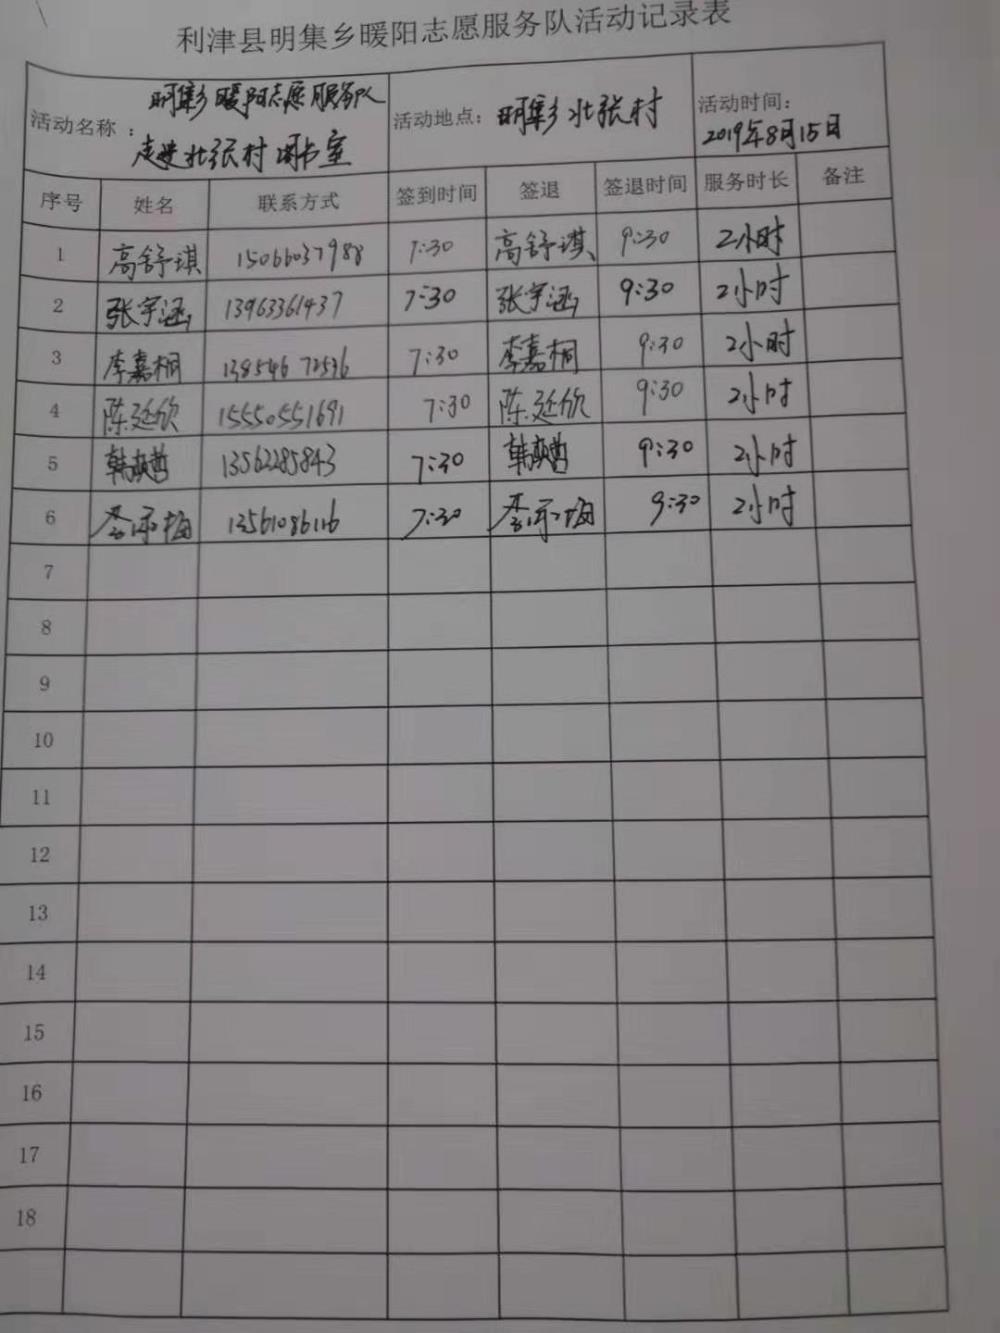 利津县明集乡暖阳志愿服务队活动记录表
活动名称： 明集乡暖阳志愿服务队
走进北张村图书室
活动地点： 明集乡北张村
活动时间：
2019年8月15日
序号 姓名 联系方式 签到时间 签退 签退时间 服务时长 备注
1 高舒琪 15066037988 7:30 高舒琪 9:30 2小时
2 张宇涵 13963361437 7:30 张宇涵 9:30 2小时
3 李嘉桐 13854672536 7:30 李嘉桐 9:30 2小时
4 陈延欣 15550551691 7:30 陈延欣 9:30 2小时
5 13562285843 7:30 9:30 2小时
6 13561086116 7:30 9:30 2小时
7
8
9
10
11
12
13
14
15
16
17
18